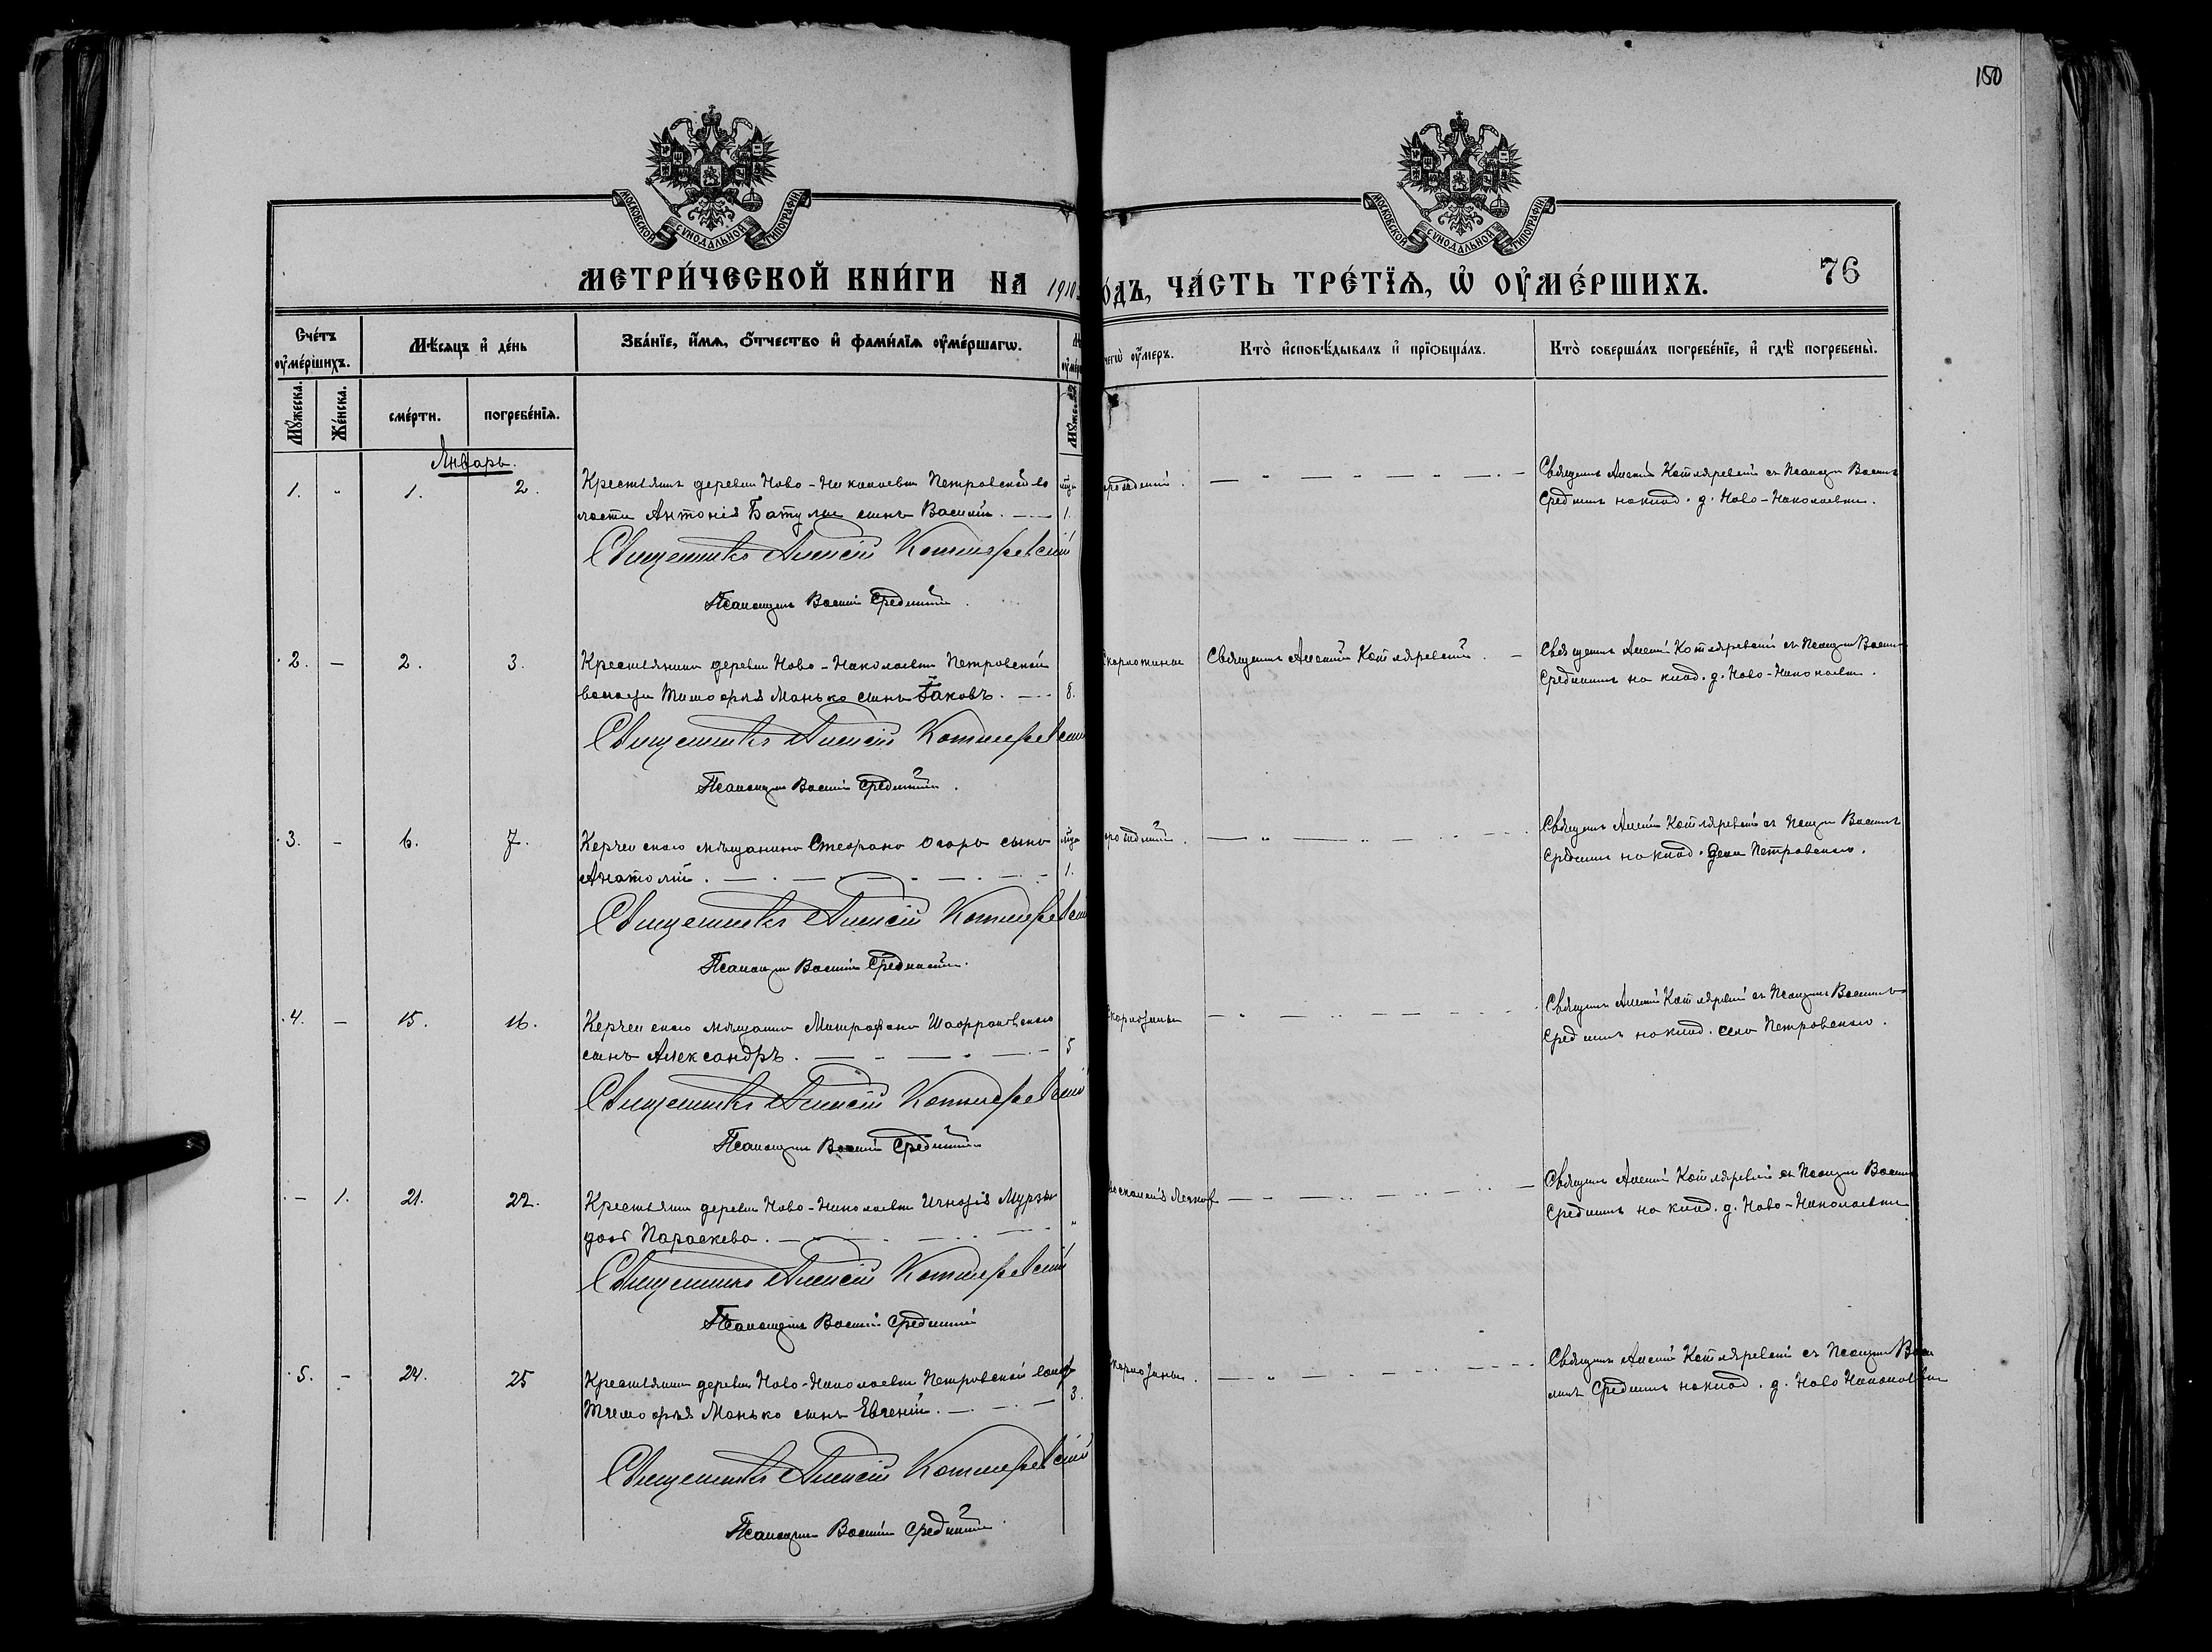 150
МОСКОВСКОЙ СУНОДАЛЬНОЙ ТИПОГРАФІИ
МОСКОВСКОЙ СУНОДАЛЬНОЙ ТИПОГРАФІИ
МЕТРИ́ЧЕСКОЙ КНИ́ГИ НА 1910
О́ДЪ, ЧА́СТЬ ТРЕ́ТЇѦ, Ѡ҆ ОУ҆МЕ́РШИХЪ.
76
Сче́тъ оу҆ме́ршихъ.
Мѣ́сяцъ и҆ де́нь
Зва́нїе, и҆́мѧ, ѻ҆́тчество и҆ фами́лїѧ оу҆ме́ршагѡ.
чегѡ̀ оу҆́меръ.
Кто̀ и҆сповѣ́дывалъ и҆ прїѡбща́лъ.
Кто̀ соверша́лъ погребе́нїе, и҆ гдѣ̀ погребены̀.
Мꙋ́жеска.
Же́нска.
сме́рти.
погребе́нїѧ.
Январь.
1. 1. 2.
Крестьянина деревни Ново-Николаевки Петровской во
лости Антонія сынъ Василій.
1.
Священникъ Алексій Котляревскій
Псаломщикъ Василій Срединскій
Священ. Алексій Котляревскій съ Псаломщ. Василіемъ
на клад. д. Ново-Николаевки.
2. – 2. 3.
Крестьянина деревни Ново-Николаевки Петровской
волости Тимоѳея Манько сынъ Іаковъ.
8.
Священникъ Алексій Котляревскій
Псаломщикъ Василій Срединскій
Священникъ Алексій Котляревскій.
Священ. Алексій Котляревскій съ Псаломщ. Василіемъ
на клад. д. Ново-Николаевки.
3. – 6. 7.
Керченскаго мѣщанина Стефана сынъ
Анатолій.
1.
Священникъ Алексій Котляревскій
Псаломщикъ Василій Срединскій
Священ. Алексій Котляревскій съ Псаломщ. Василіемъ
на клад. Петровскаго.
4. – 15. 16.
Керченскаго мѣщанина Митрофана
сынъ Александръ.
5
Священникъ Алексій Котляревскій
Псаломщикъ Василій Срединскій
Священ. Алексій Котляревскій съ Псаломщ. Василіемъ
на клад. села Петровскаго.
– 1. 21. 22.
Крестьянина деревни Ново-Николаевки Игнатія
Параскева.
Священникъ Алексій Котляревскій
Псаломщикъ Василій Срединскій
Священ. Алексій Котляревскій съ Псаломщ. Василіемъ
на клад. д. Ново-Николаевки
5. – 24. 25
Крестьянина деревни Ново-Николаевки Петровской волост.
Тимоѳея Манько сынъ Евгеній.
3.
Священникъ Алексій Котляревскій
Псаломщикъ Василій Срединскій
Священ. Алексій Котляревскій съ Псаломщ. Васи
на клад. д. Ново Николаевки